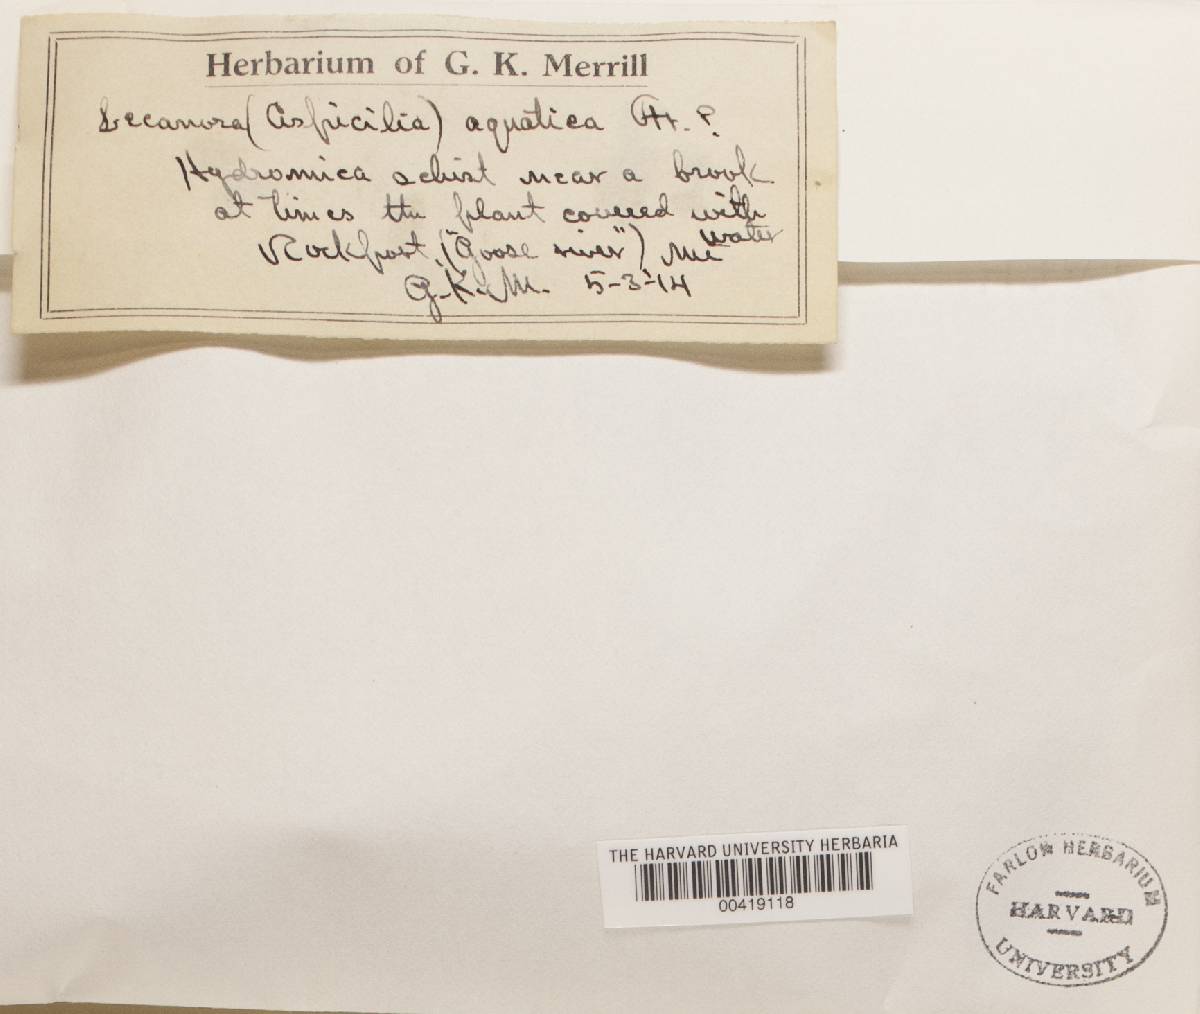 Herbarium of G. K. Merrill
Lecanora (Aspicilia) aquatica Fr. ?
Hydromica schist near a brook
at times the plant covered with
water
Rockport, ("Goose river") Me
G.K.M. 5-3-14
THE HARVARD UNIVERSITY HERBARIA
00419118
FARLOW HERBARIUM
HARVARD
UNIVERSITY